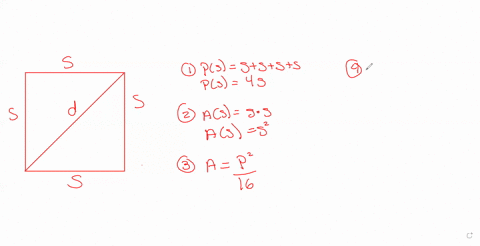 S
S
d
S
S
① P(s) = s+s+s+s
P(s) = 4s
② A(s) = s·s
A(s) = s²
③ A = P²/16
④